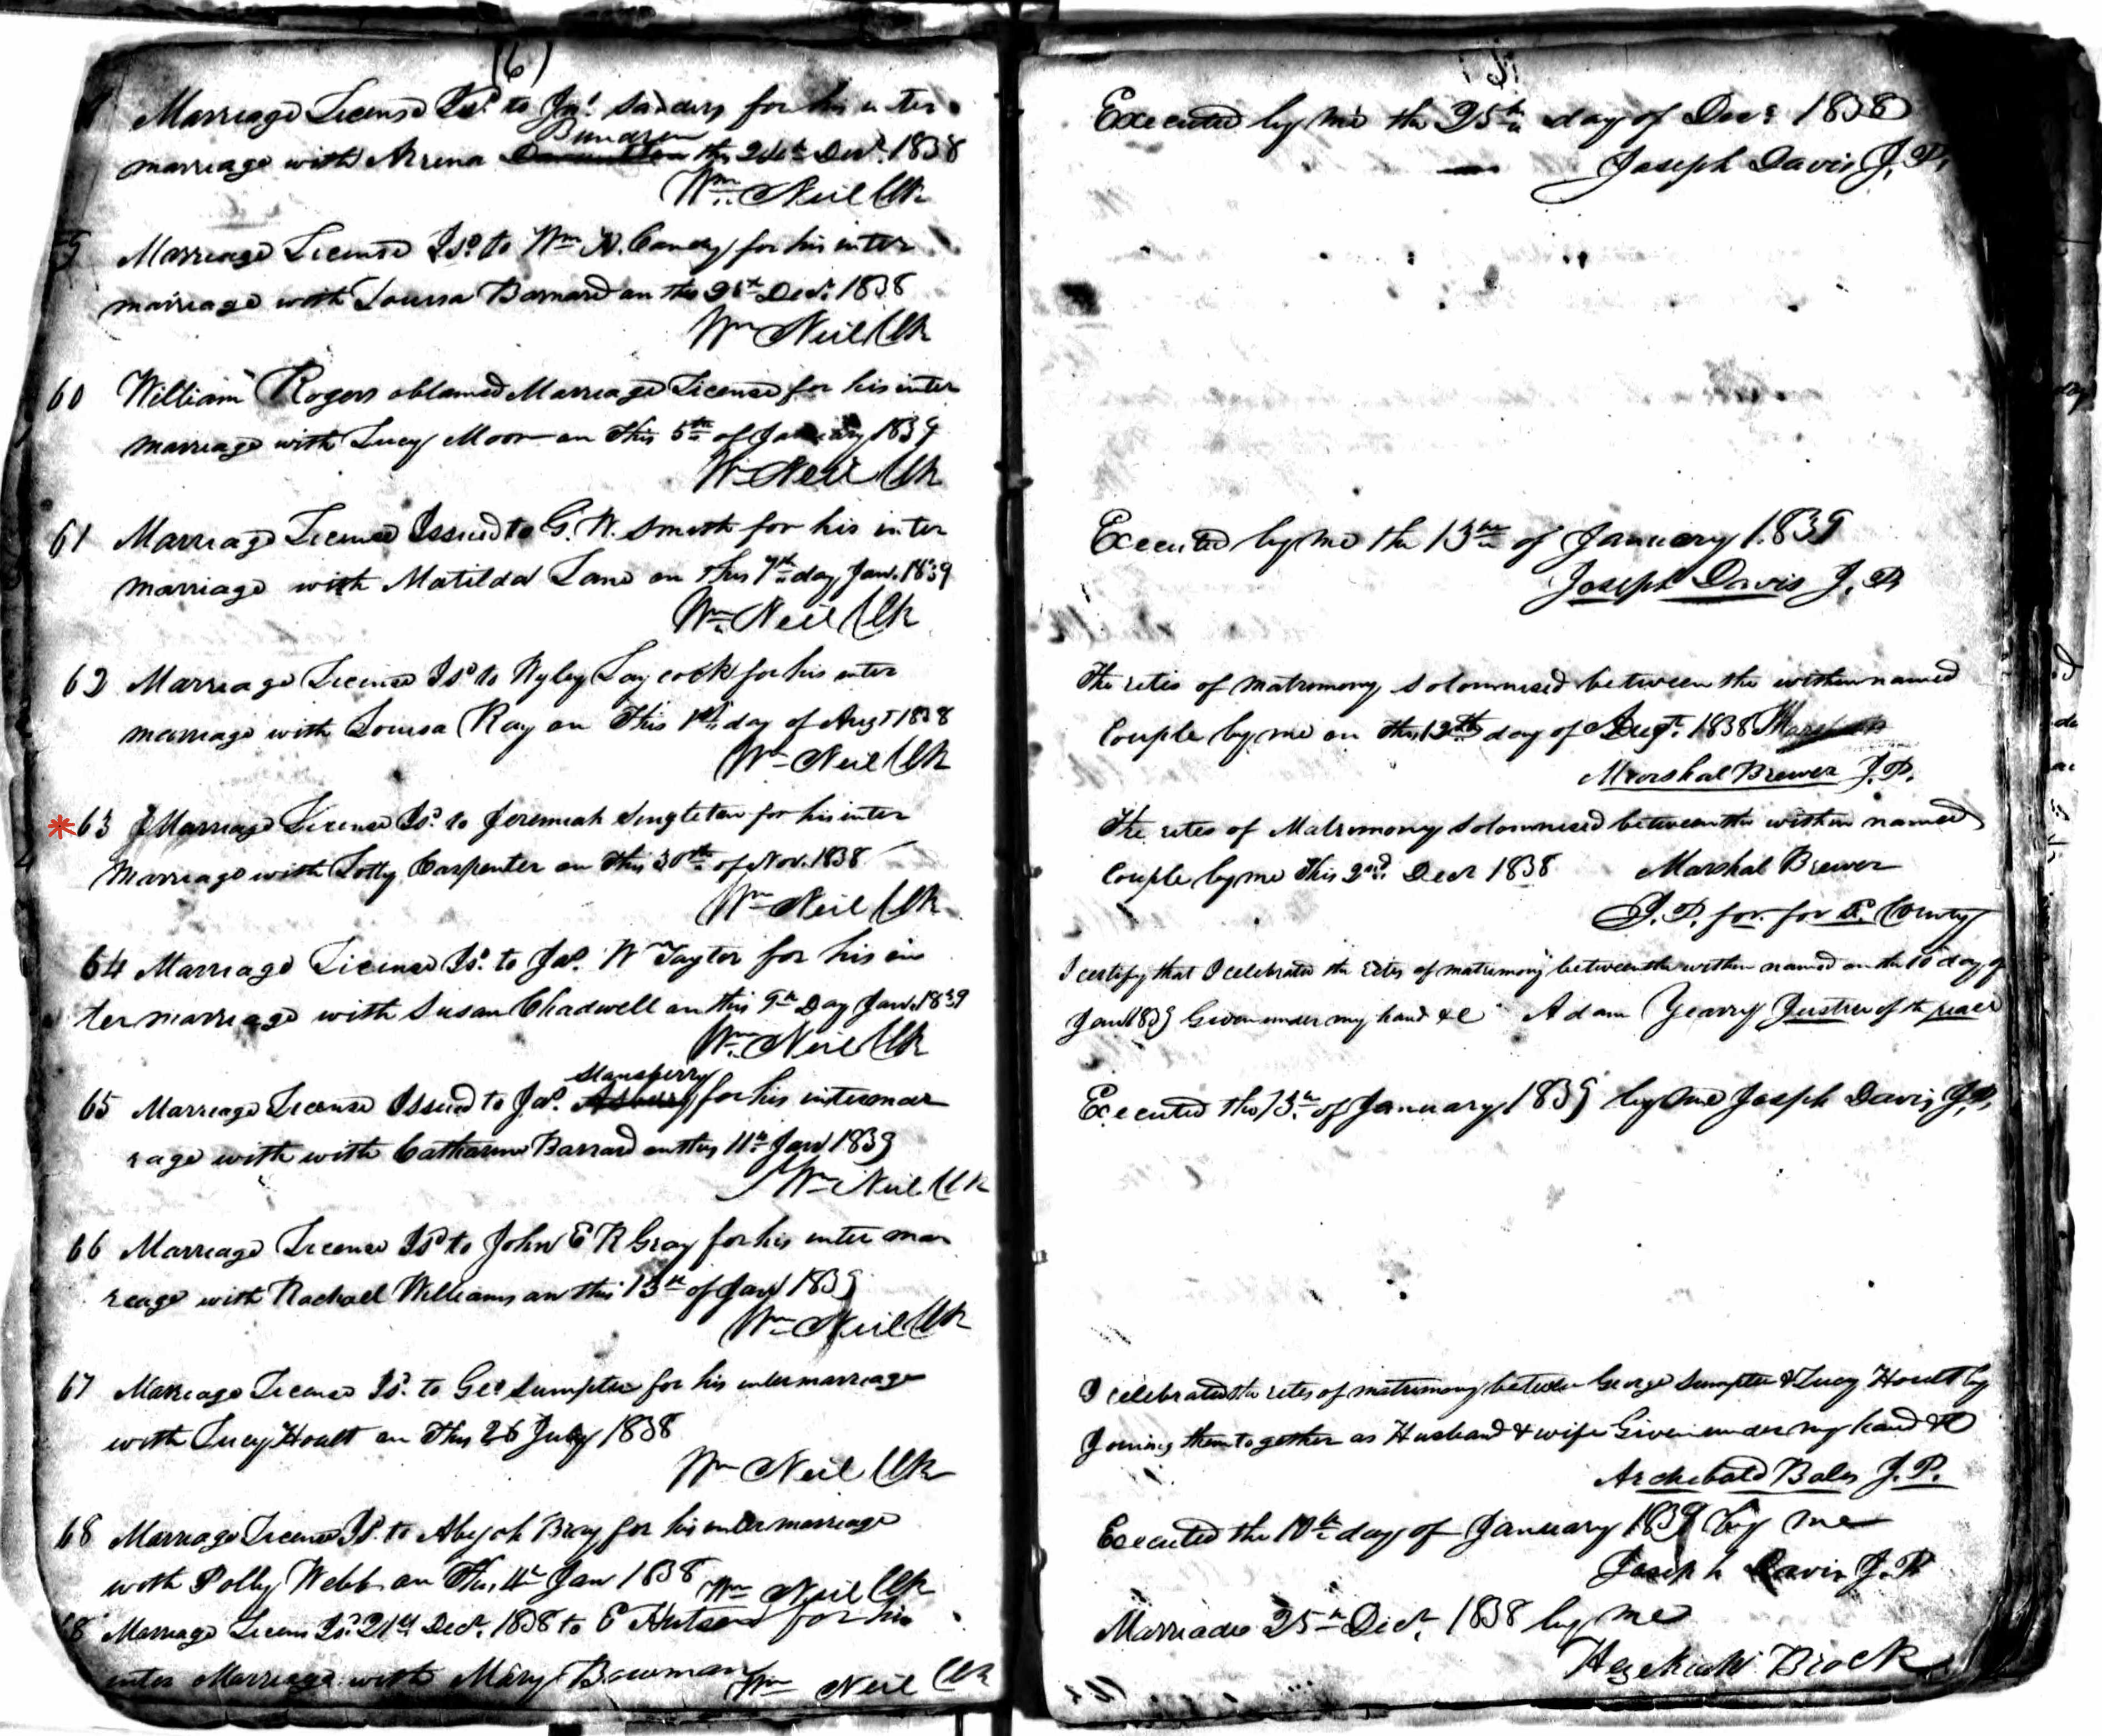 (6)
Marriage License Isd. to Jno. Sanders for his inter
Bundren
marriage with Arena the 24th Decr. 1838
Wm Neil Clk
59 Marriage License Isd. to Wm N. Candy for his inter
marriage with Louisa Barnard on the Decr. 1838
Wm Neil Clk
60 William Rogers obtained Marriage License for his inter
marriage with Lucy Moor on this 5th of January 1839
Wm Neil Clk
61 Marriage License Issued to G. W. Smith for his inter
marriage with Matilda Lane on this 7th day Jan. 1839
Wm Neil Clk
62 Marriage License Isd to Wyley Laycock for his inter
marriage with Louisa Ray on this 1st day of Augt 1838
Wm Neil Clk
63 Marriage License Isd. to Jeremiah Singleton for his inter
marriage with Lotty Carpenter on this 30th of Nov. 1838
Wm Neil Clk
64 Marriage License Isd. to Jas. W Taylor for his in
termarriage with Susan Chadwell on this 9th Day Jan. 1839
Wm Neil Clk
Stansberry
65 Marriage License Issued to Jas. Asberry for his intermar
rage with with Catharine Barnard on this 11th Jan 1839
Wm Neil Clk
66 Marriage License Isd to John E R Gray for his inter mar
reage with Rachael Williams on this 13th of Jan 1839
Wm Neil Clk
67 Marriage License Isd. to Geo Sumpter for his intermarriage
with Lucy Hoult on this 26 July 1838
Wm Neil Clk
68 Marriage License Isd. to Abijah Bray for his intermarriage
with Polly Webb on this Jan 1838 Wm Neil Clk
68 Marriage Licens Isd. 21st Decr. 1838 to E Hutson for his
inter Marriage with Mary Bowman Wm Neil Clk
Executed by me the 25th day of Decr 1838
Joseph Davis J. P.
Executed by me the 13th of January 1839
Joseph Davis J. P.
The rites of matrimony solomnised between the within named
Couple by me on this 12th day of Augt. 1838 Marshal
Marshal Brewer J. P.
The rites of Matrimony solomnised between the within named
Couple by me this 2nd. Decr 1838 Marshal Brewer
J. P. for for County
I certify that I celebrated the rites of matrimony between the within named on the 10 day of
Jan 1839 Given under my hand &c Adam Yearry Justice of the peace
Executed the 13th of January 1839 by me Joseph Davis J. P.
I celebrated the rites of matrimony between George Sumpter & Lucy Hoult by
Joining them together as Husband & wife Given under my hand &c
Archibald Bales J. P.
Executed the 10th day of January 1839 by me
Joseph Davis J. P
Married 25th Decr. 1838 by me
Hezekiah Brock